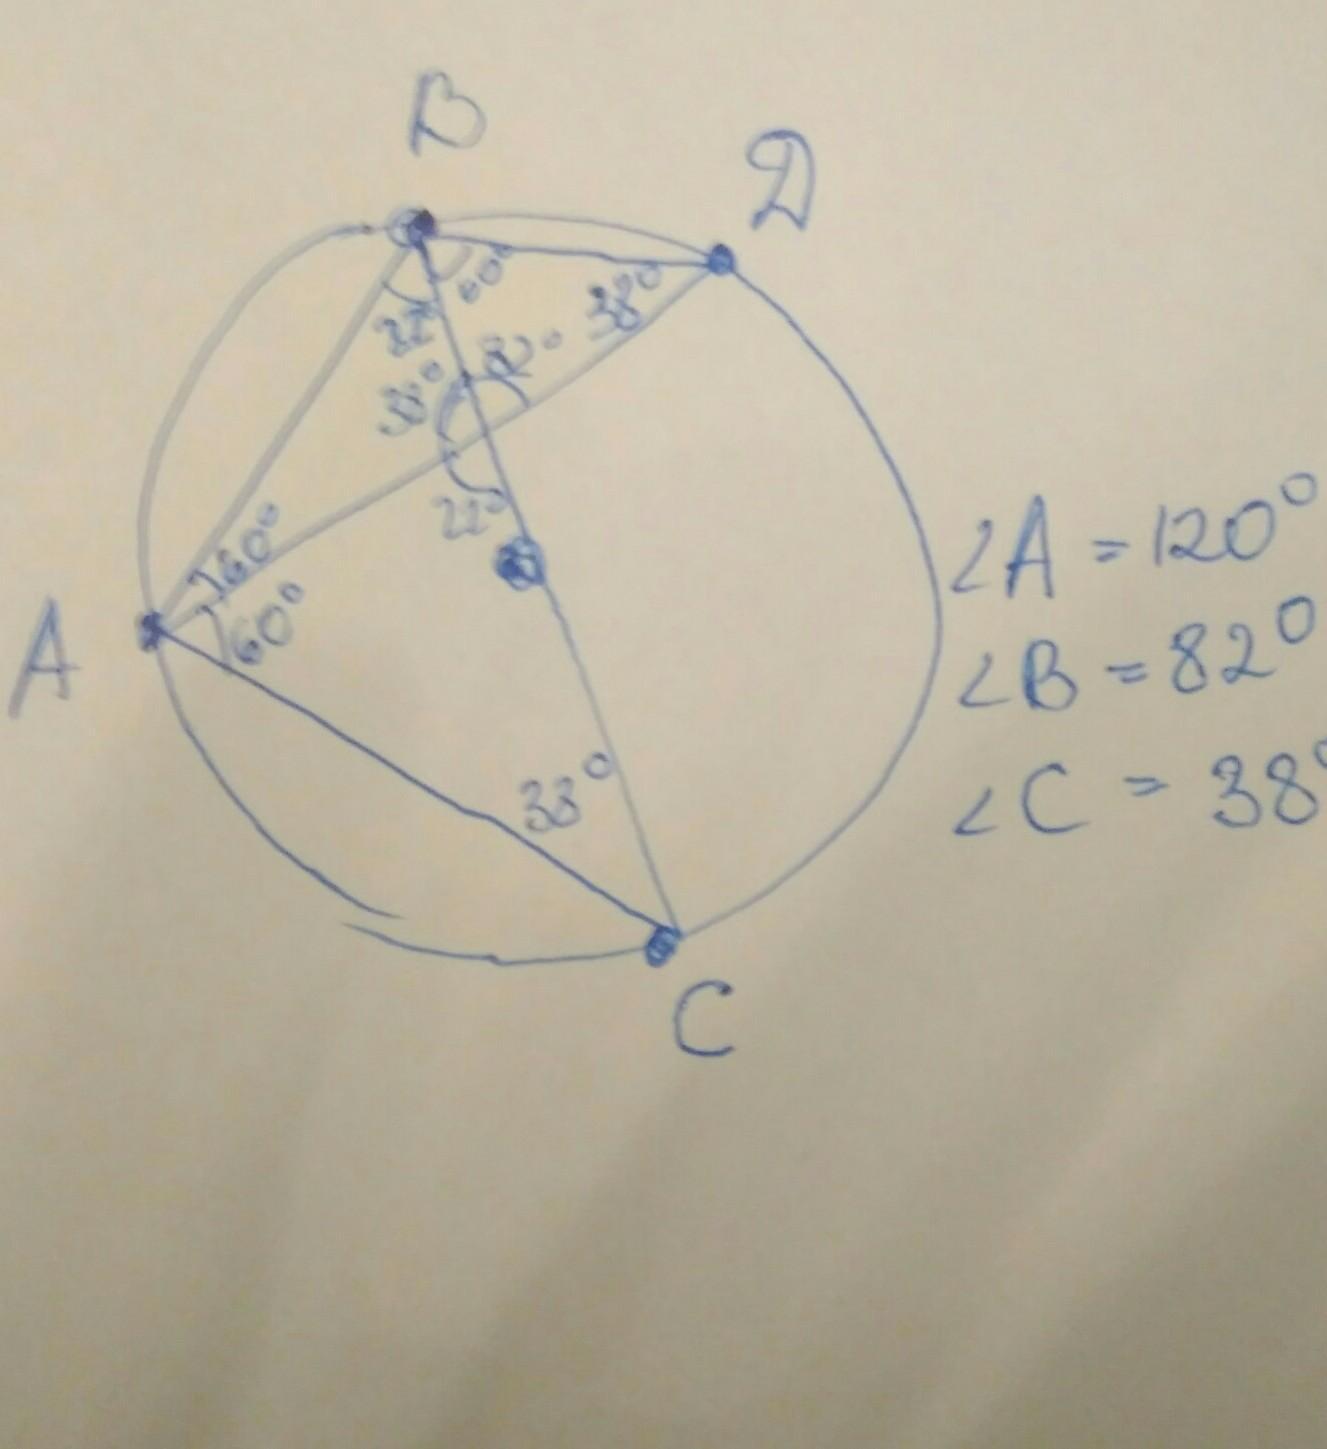 B
D
22°
60°
38°
38°
82°
22°
60°
60°
A
38°
C
∠A = 120°
∠B = 82°
∠C = 38°